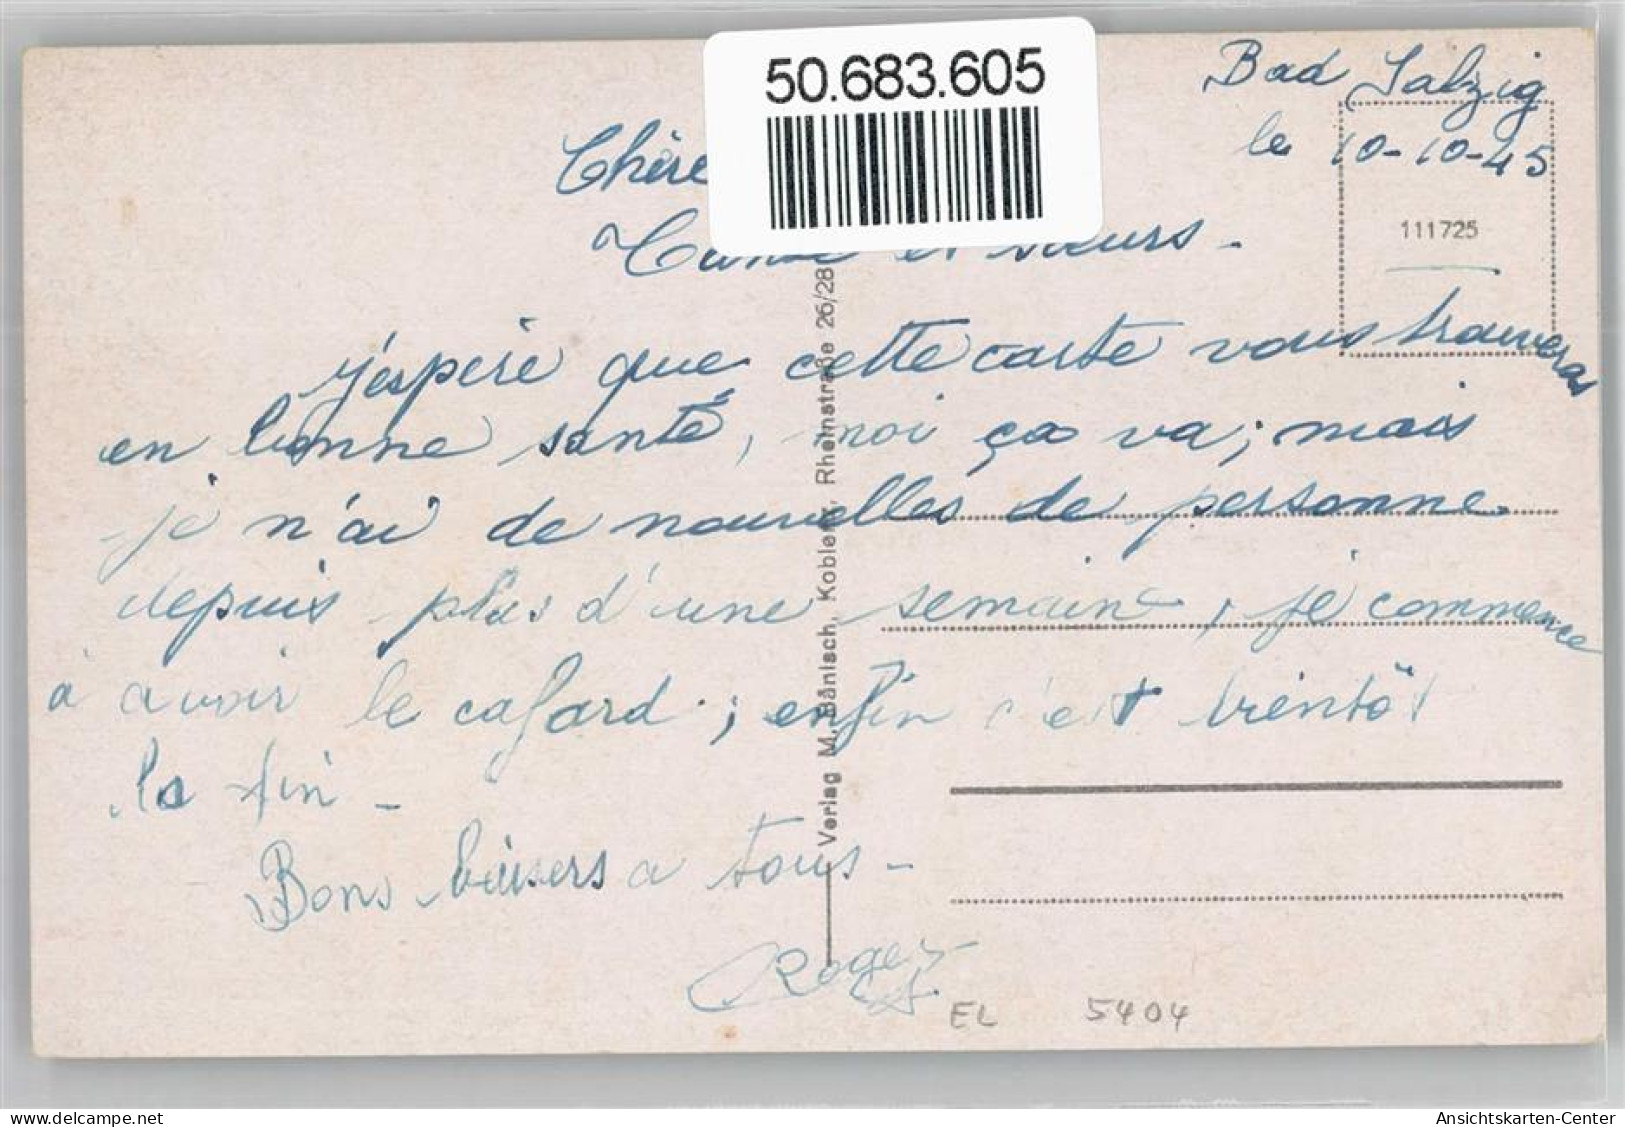 50.683.605
Bad Salzig
le 10-10-45
Chère
et sœurs -
111725
j'espère que cette carte vous trouveras
en bonne santé, moi ça va; mais
je n'ai de nouvelles de personne
depuis plus d'une semaine, je commence
à avoir le cafard; enfin c'est bientôt
la fin -
Bons baisers a tous -
Roger
Verlag M. Bänisch, Koblenz, Rheinstraße 26/28
EL 5404
delcampe.net
Ansichtskarten-Center